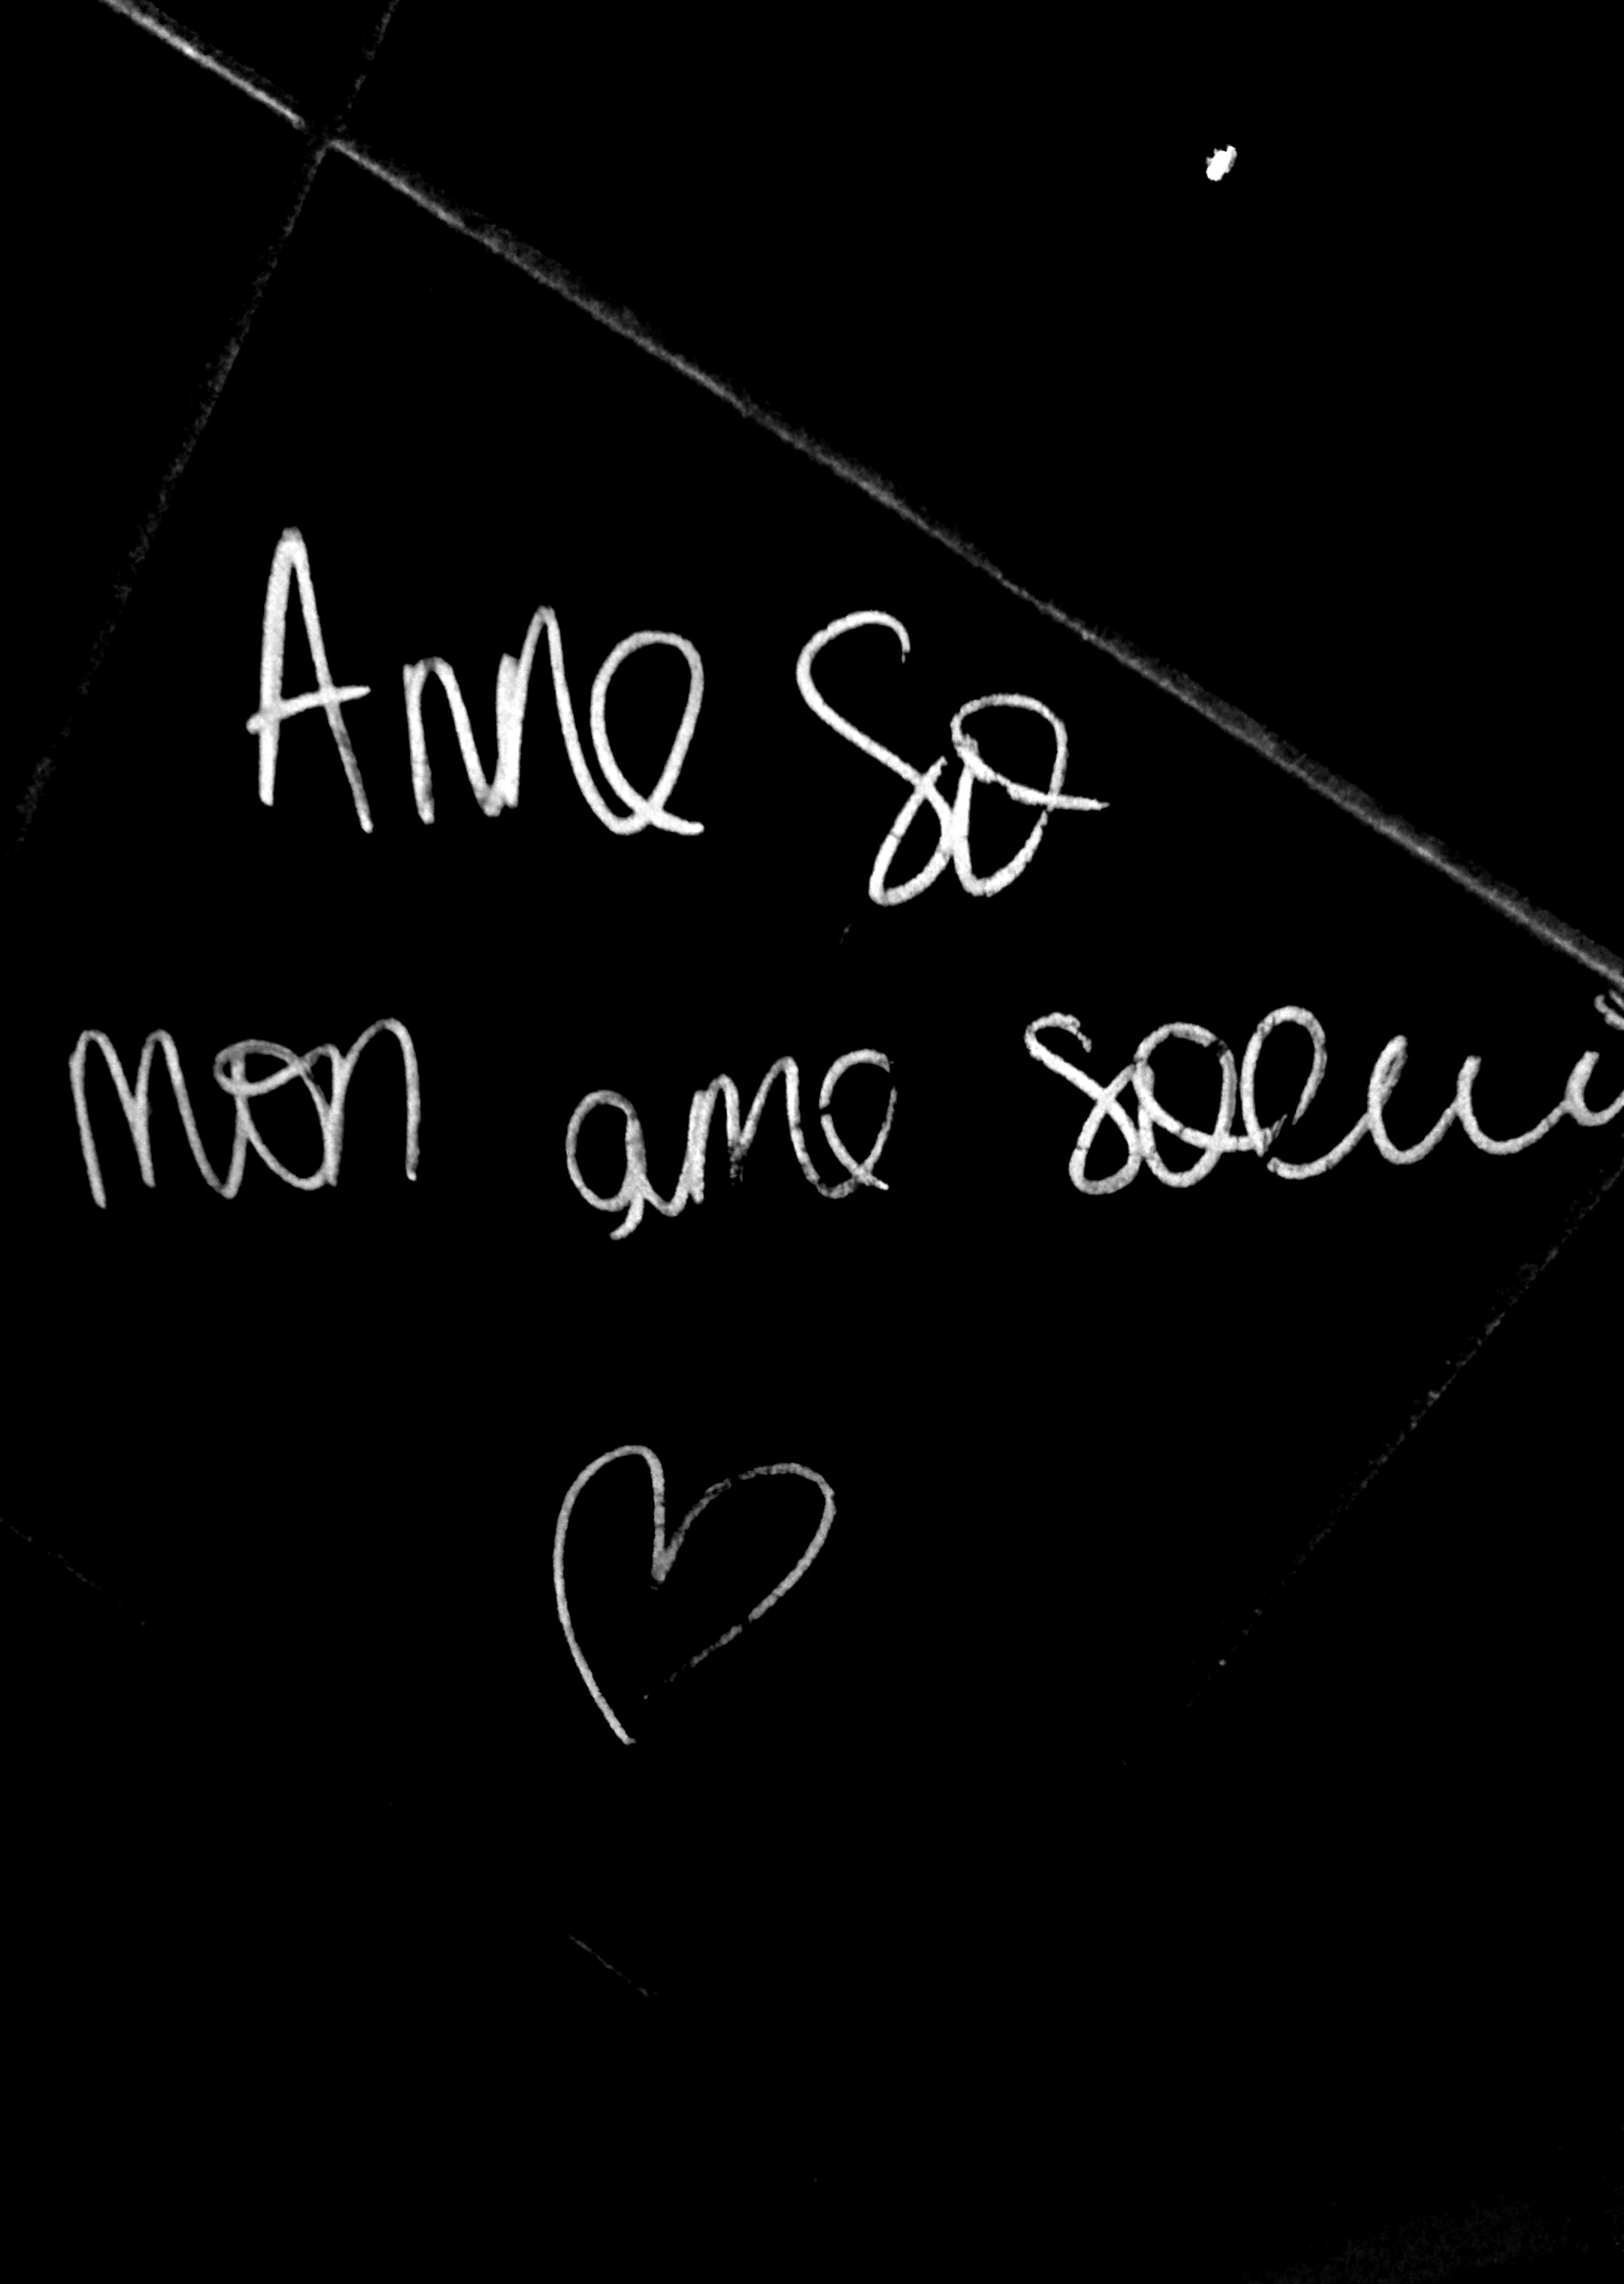 Anne So
mon ame soeu